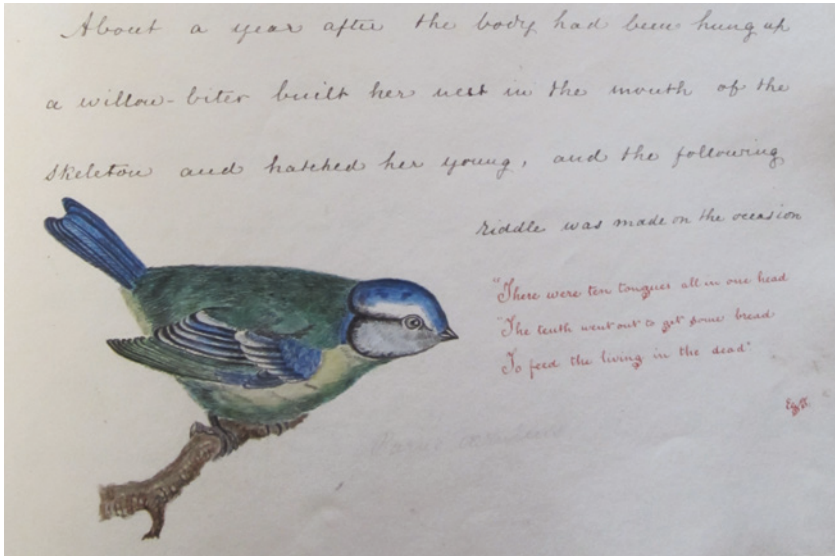 About a year after the body had been hung up
a willow-biter built her nest in the mouth of the
skeleton and hatched her young, and the following
riddle was made on the occasion
"There were ten tongues all in one head
"The tenth went out to get some bread
To feed the living in the dead"
Parus